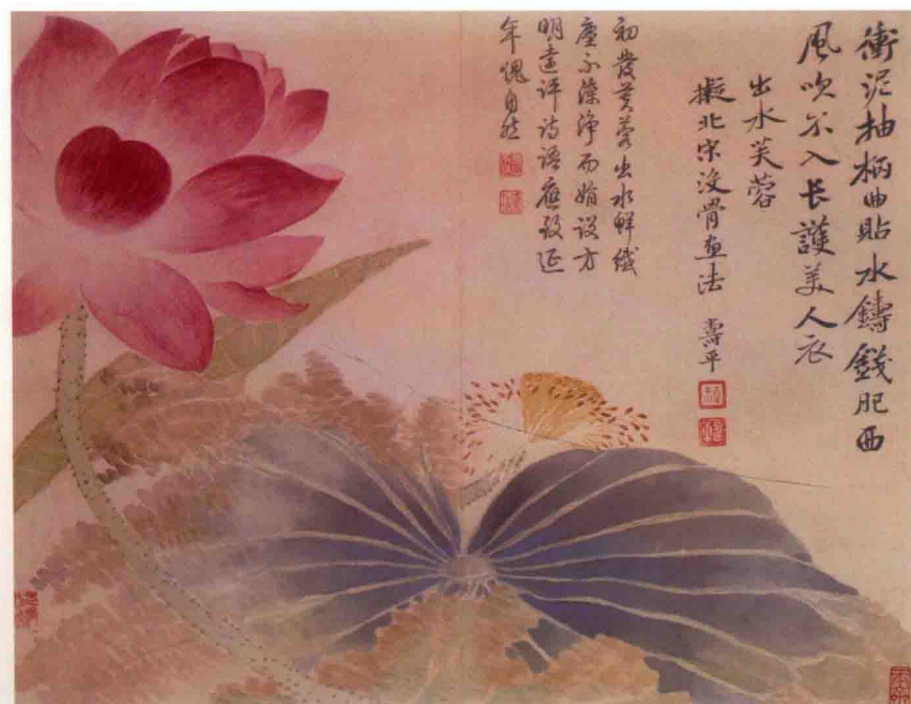 衝泥抽柄曲貼水鑄錢肥西
風吹不入长護美人衣
出水芙蓉
擬北宋沒骨畫法 壽平
初發芙蓉出水鮮纖
塵不滓净而娟設方
明遠评诗語應致延
年愧自然